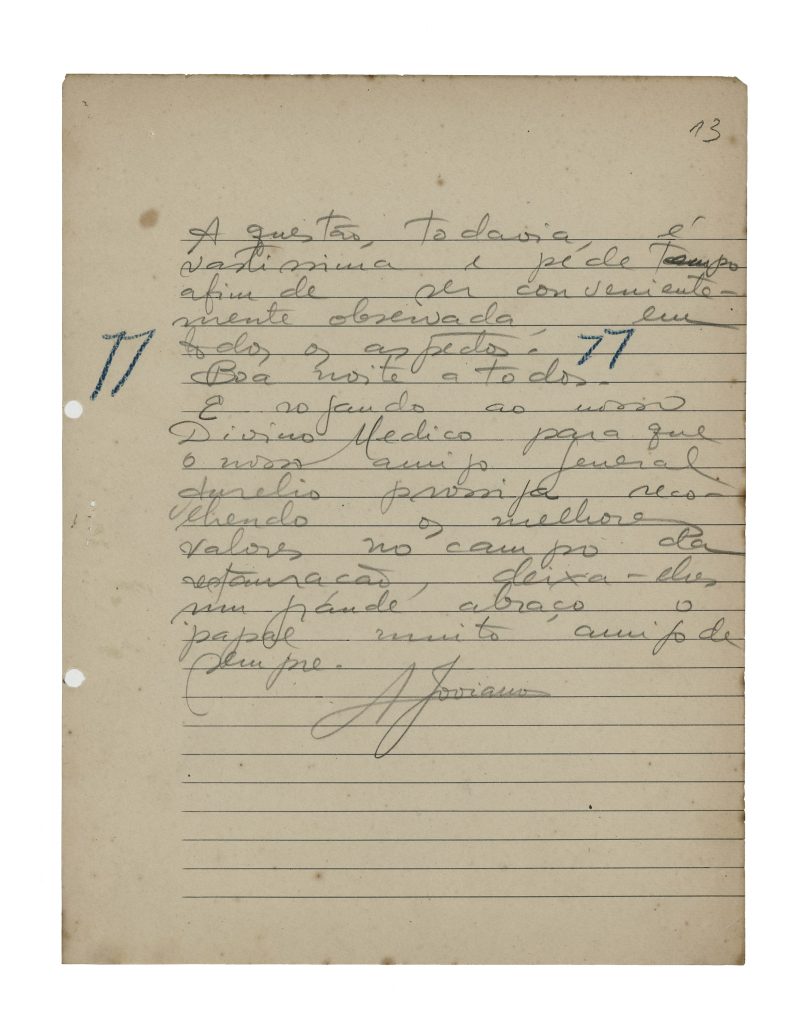 13
A questão, todavia, é
vastissima e péde tempo
afim de ser conveniente-
mente observada, em
todos os aspectos.
Boa noite a todos.
E rogando ao nosso
Divino Medico para que
o nosso amigo General
Aurelio prossiga reco-
lhendo os melhores
valores no campo da
restauracão, deixa-lhes
um grande abraço o
papae muito amigo de
sempre.
A Joviano